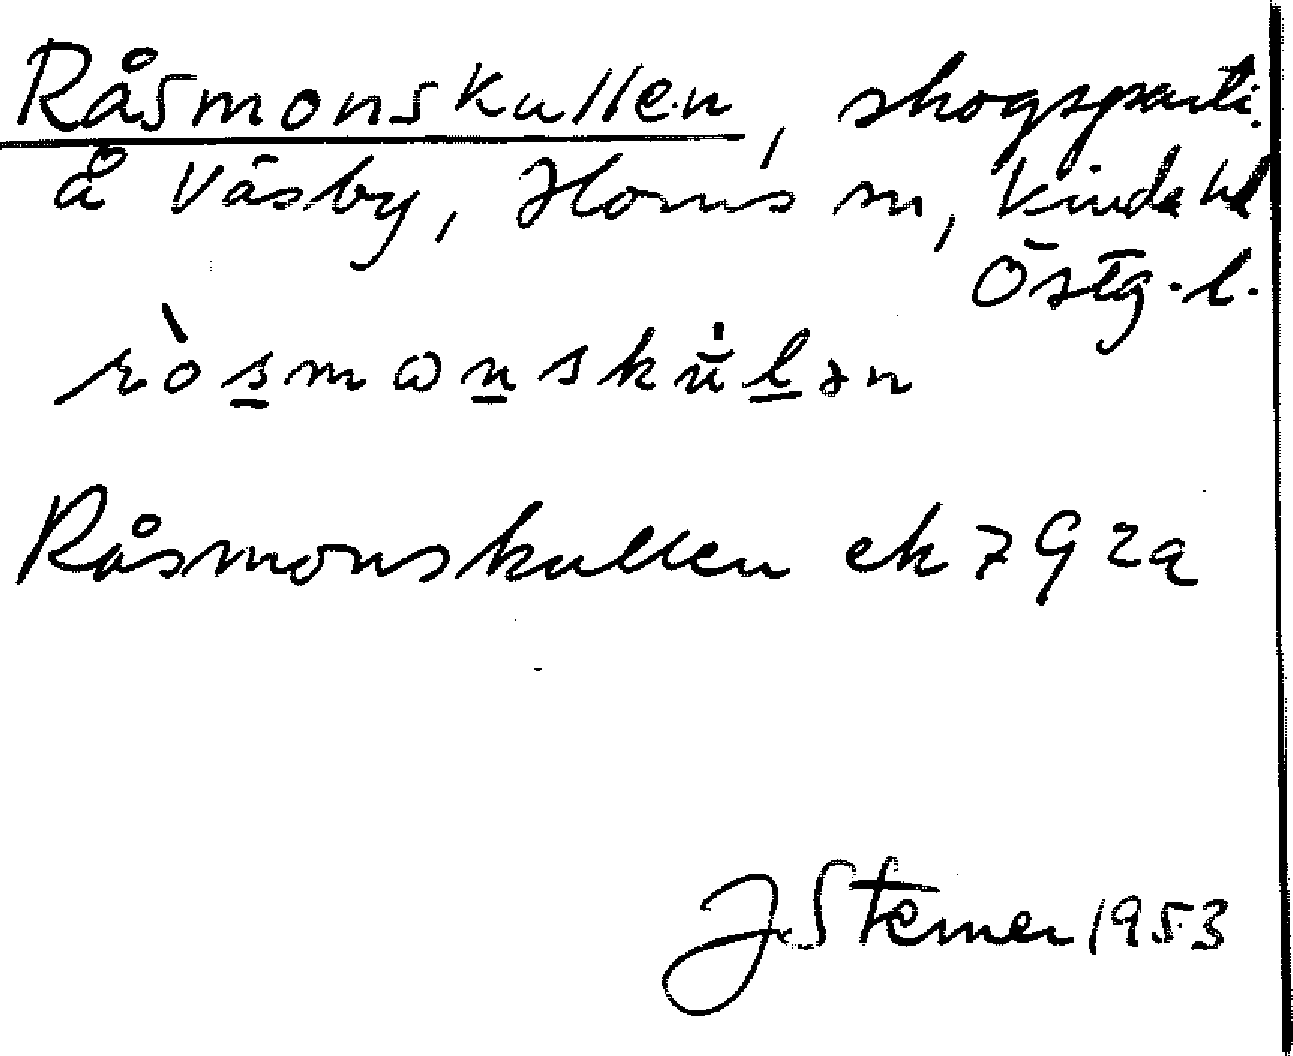 Råsmonskullen, skogsparti
å Väsby, Horns sn, Kinda hd
Östg. l.
Råsmonskullen ek 7 9 2a
J. Sterner 1953